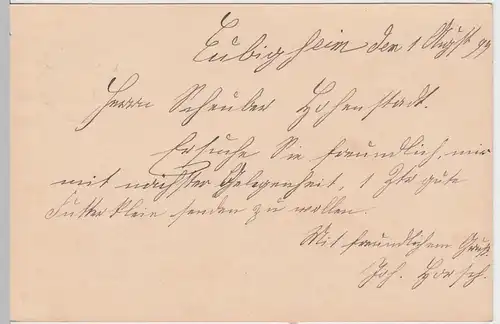 Eubigheim den 1 August 99
Herrn Scheuber Hohenstadt.
Ersuche Sie freundlich, mir
mit nächster Gelegenheit, 1 Ztr gute
Futterkleie senden zu wollen.
Mit freundlichem Gruß.
Joh.